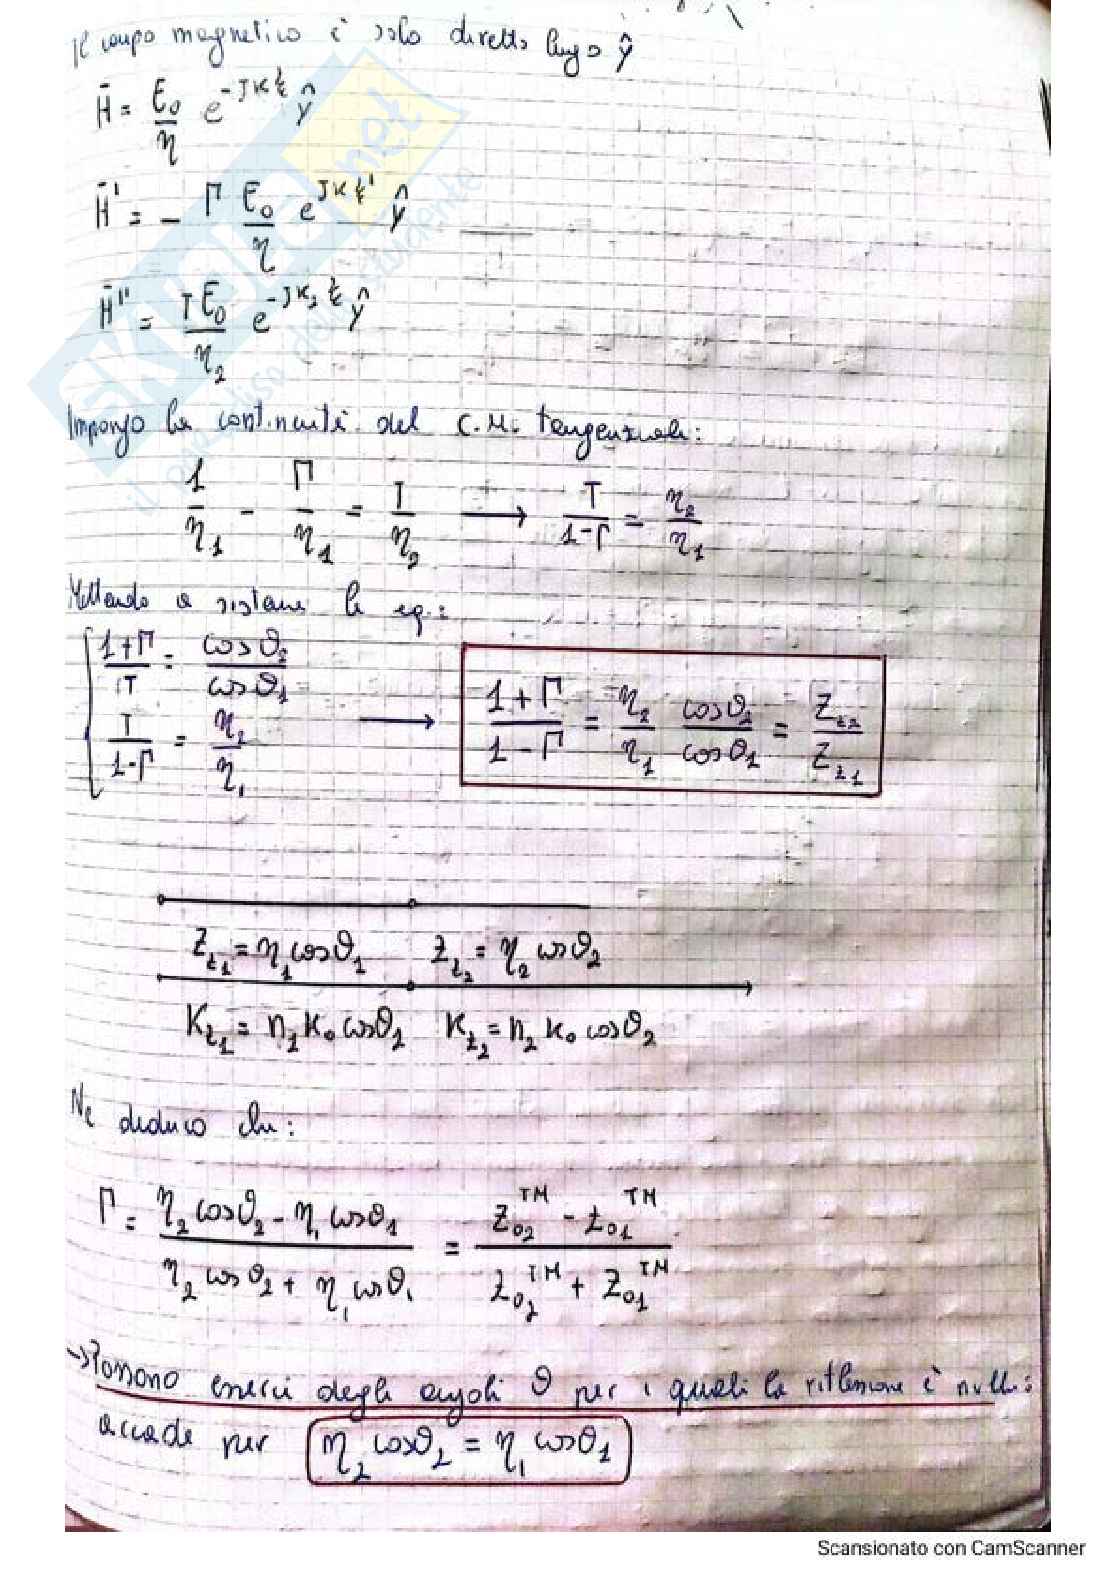 Il campo magnetico è solo diretto lungo ŷ
H̄ = E₀/η e^(-JKz) ŷ
H̄' = - Γ E₀/η e^(JKz') ŷ
H̄'' = T E₀/η₂ e^(-JK₂z) ŷ
Impongo la continuità del C.M. tangenziale:
1/η₁ - Γ/η₁ = T/η₂ → T/(1-Γ) = η₂/η₁
Mettendo a sistema le eq.:
{ (1+Γ)/T = cosϑ₂/cosϑ₁
T/(1-Γ) = η₂/η₁ → (1+Γ)/(1-Γ) = η₂/η₁ cosϑ₂/cosϑ₁ = Z_z₂/Z_z₁
Z_z₁ = η₁cosϑ₁ Z_z₂ = η₂ cosϑ₂
K_z₁ = n₁K₀cosϑ₁ K_z₂ = n₂K₀ cosϑ₂
Ne deduco che:
Γ = (η₂cosϑ₂ - η₁cosϑ₁)/(η₂cosϑ₂ + η₁cosϑ₁) = (Z₀₂^TM - Z₀₁^TM)/(Z₀₂^TM + Z₀₁^TM)
→ Possono esserci degli angoli ϑ per i quali la riflessione è nulla:
accade per η₂cosϑ₂ = η₁cosϑ₁
SKUOLA.net
il paradiso dello studente
Scansionato con CamScanner